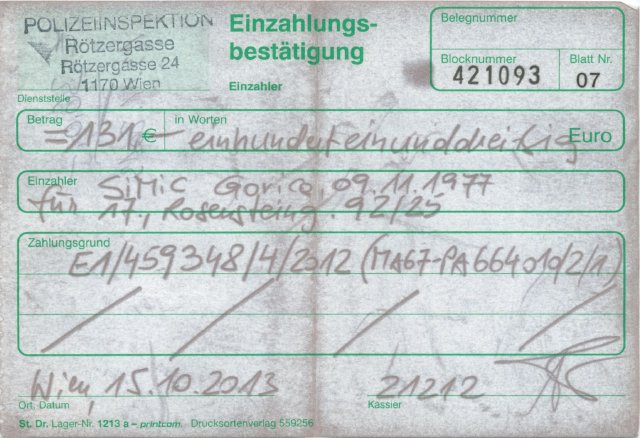 POLIZEIINSPEKTION
Rötzergasse
Rötzergasse 24
1170 Wien
Dienststelle
Einzahlungs-
bestätigung
Einzahler
Belegnummer
Blocknummer
421093
Blatt Nr.
07
Betrag
in Worten
=131,- € einhunderteinunddreißig Euro
Einzahler SIMIC Gorica, 09.11.1977
für 17., Rosensteing. 92/25
Zahlungsgrund
E1/459348/4/2012 (MA67-PA 664010/2/1)
Wien, 15.10.2013
21212
Ort, Datum
Kassier
St. Dr. Lager-Nr. 1213 a – printcom. Drucksortenverlag 559256